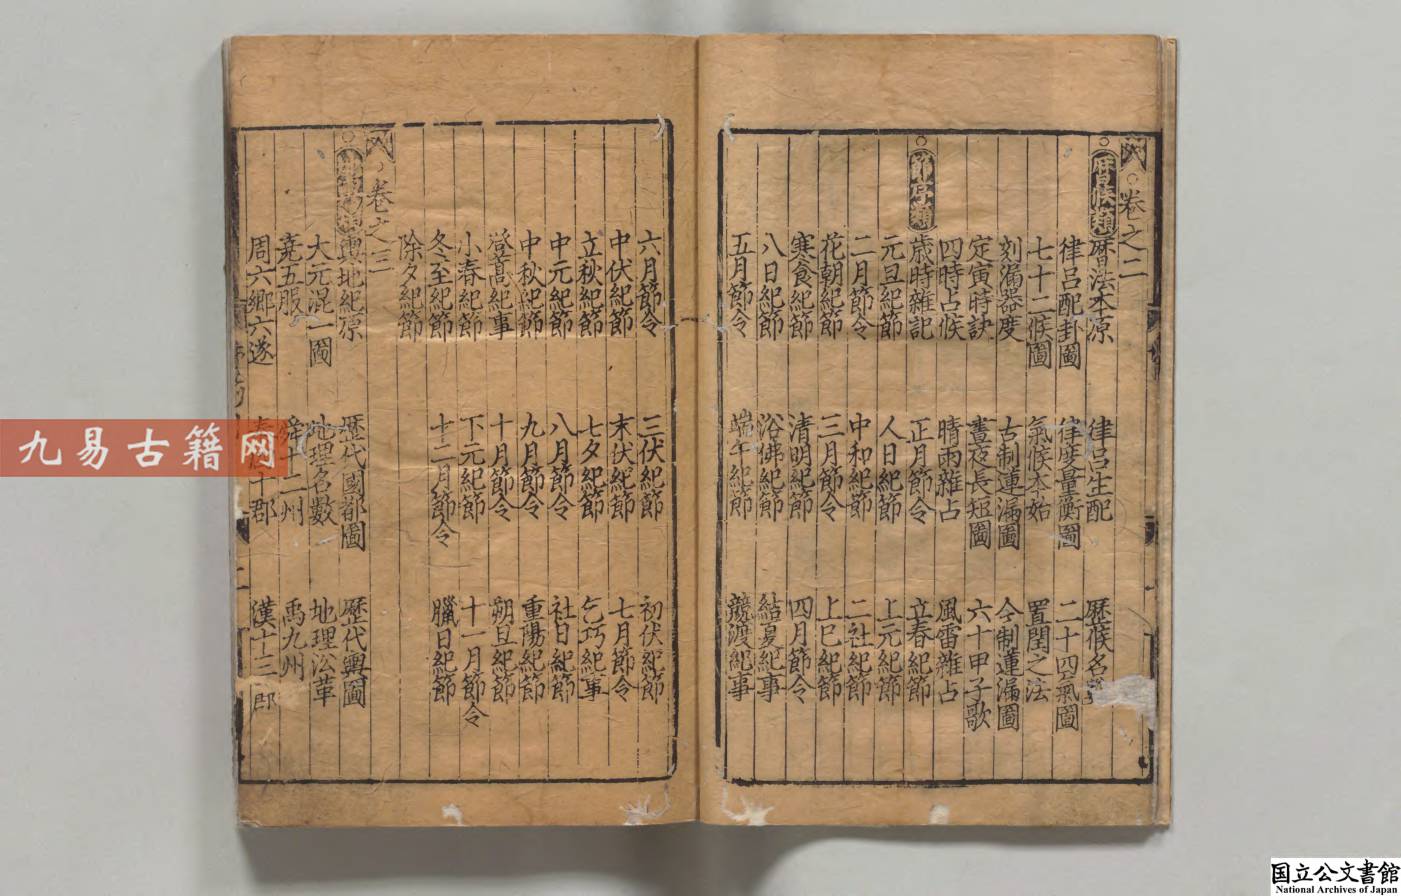 卷之二
暦候類 曆法本原 律呂生配 歷候名
律呂配卦圖 律度量衡圖 二十四氣圖
七十二候圖 氣候本始 置閏之法
刻漏器度 古制蓮漏圖 今制蓮漏圖
定寅時訣 晝夜長短圖 六十甲子歌
四時占候 晴雨雜占 風雷雜占
節序類 歲時雜記 正月節令 立春紀節
元旦紀節 人日紀節 上元紀節
二月節令 中和紀節 二社紀節
花朝紀節 三月節令 上巳紀節
寒食紀節 清明紀節 四月節令
八日紀節 浴佛紀節 結夏紀事
五月節令 端午紀節 競渡紀事
六月節令 三伏紀節 初伏紀節
中伏紀節 末伏紀節 七月節令
立秋紀節 七夕紀節 乞巧紀事
中元紀節 八月節令 社日紀節
中秋紀節 九月節令 重陽紀節
登高紀事 十月節令 朔旦紀節
小春紀節 下元紀節 十一月節令
冬至紀節 十二月節令 臘日紀節
除夕紀節
卷之三
輿地紀原 歷代國都圖 歷代輿圖
大元混一圖 地理名數 地理沿革
堯五服 舜十二州 禹九州
周六鄉六遂 十郡 漢十三
九易古籍网
国立公文書館
National Archives of Japan